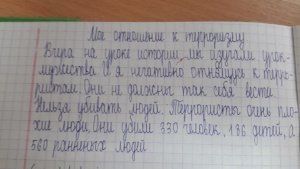 Мое отношение к терроризму
Вчера на уроке истории мы изучали урок
мужества и я негативно отношусь к терро-
ристам. Они не должны так себя вести.
Нельзя убивать людей. Террористы очень пло-
хие люди. Они убили 330 человек, 186 детей, а
560 раненных людей